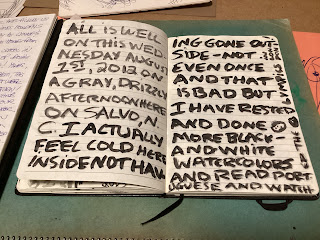 ALL IS WELL
ON THIS WED
NESDAY AUGUST
1ST, 2012 ON
A GRAY, DRIZZLY
AFTERNOON HERE
ON SALVO, N.
C. I ACTUALLY
FEEL COLD HERE
INSIDE NOT HAV
ING GONE OUT
SIDE—NOT
EVEN ONCE
AND THAT
IS BAD BUT
I HAVE RESTED
AND DONE
MORE BLACK
AND WHITE
WATERCOLORS
AND READ PORT
UGUESE AND WATCH